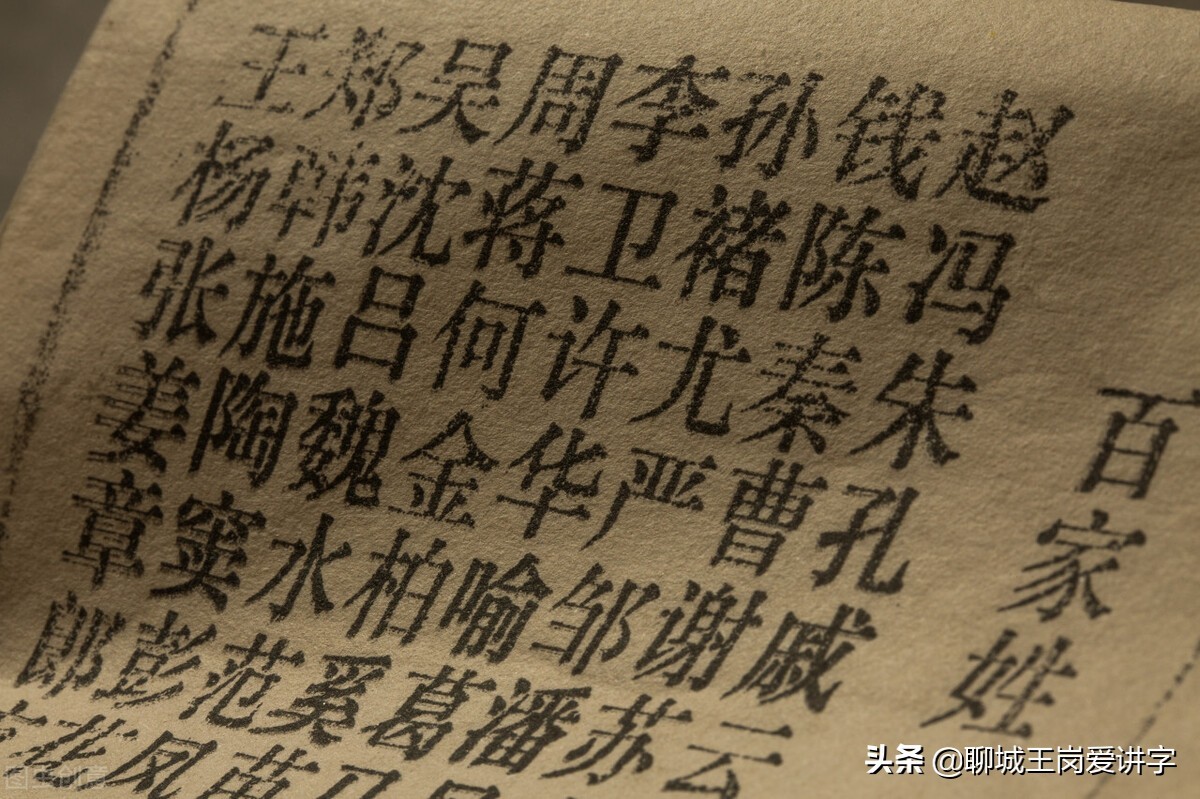 百家姓
赵钱孙李周吴郑王
冯陈褚卫蒋沈韩杨
朱秦尤许何吕施张
孔曹严华金魏陶姜
戚谢邹喻柏水窦章
云苏潘葛奚范彭郎
苗凤花
头条 @聊城王岗爱讲字
图虫创意